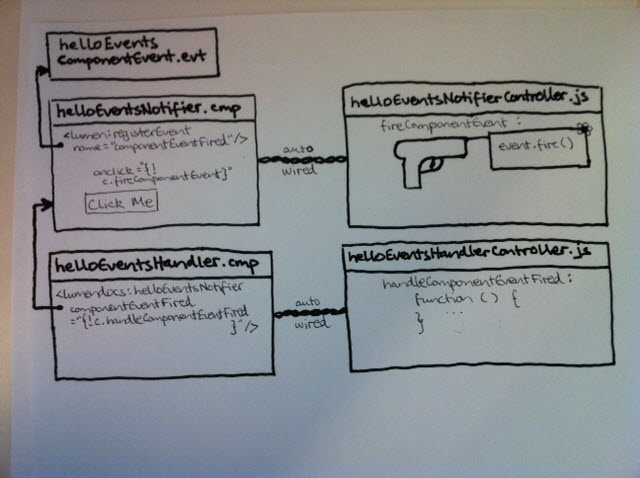 helloEvents
ComponentEvent.evt
helloEventsNotifier.cmp
<lumen:registerEvent
name="componentEventFired"/>
onclick="{!
c.fireComponentEvent}"
Click Me
auto
wired
helloEventsNotifierController.js
fireComponentEvent :
event.fire()
helloEventsHandler.cmp
<lumendocs:helloEventsNotifier
componentEventFired
="{!c.handleComponentEventFired
}"/>
auto
wired
helloEventsHandlerController.js
handleComponentEventFired :
function () {
...
}